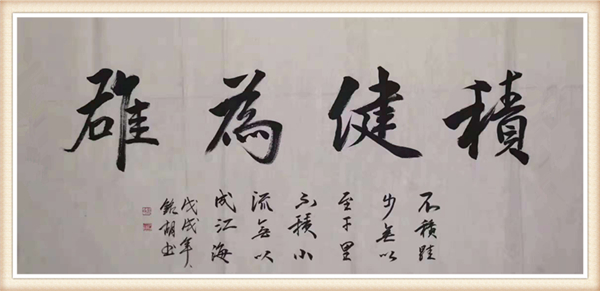 積健為雄
不積跬
步無以
至千里
不積小
流無以
成江海
戊戌年